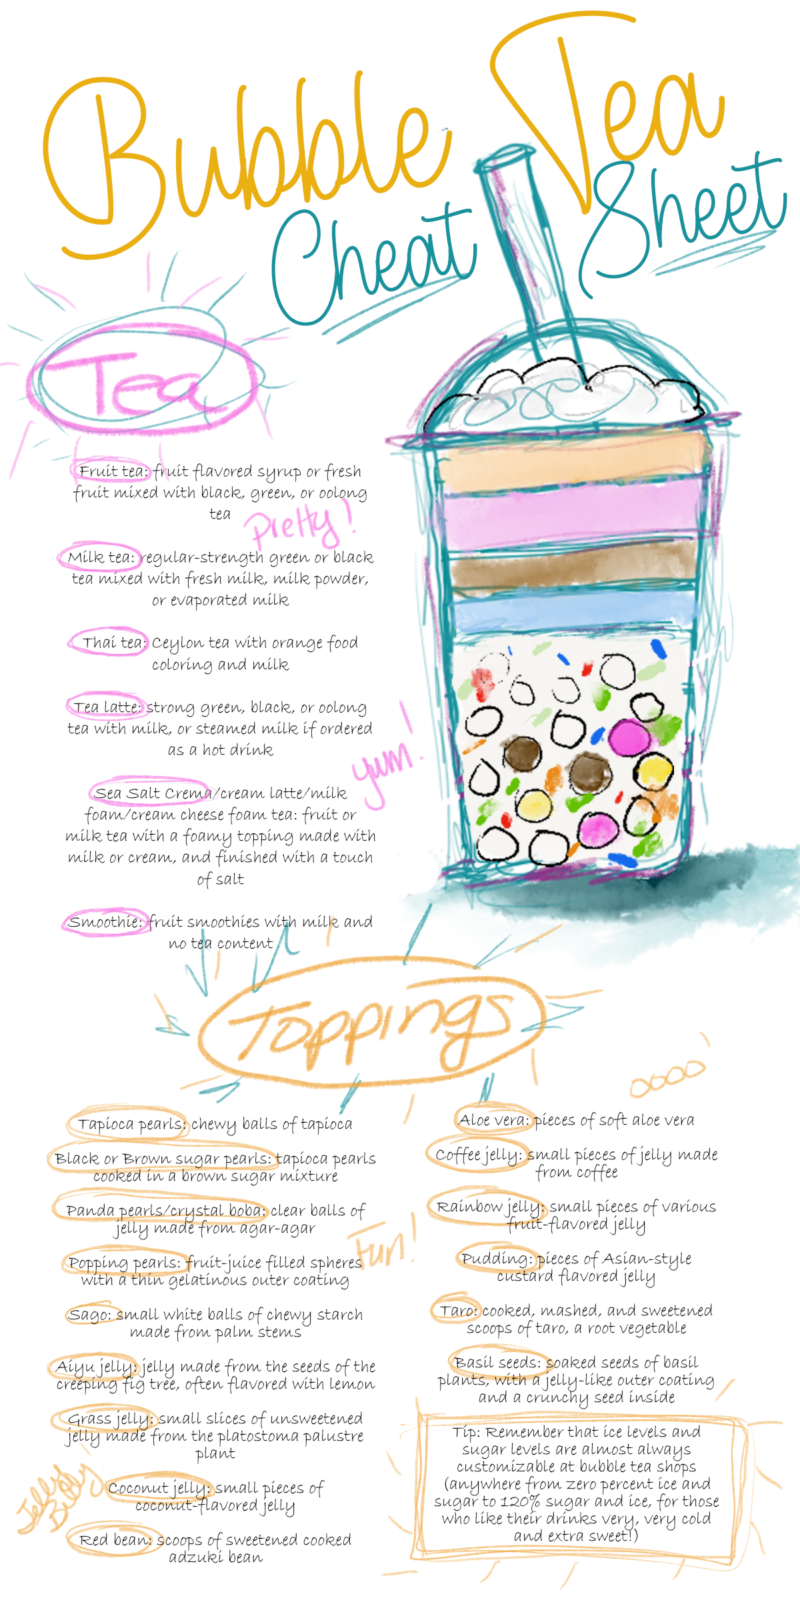 Bubble Tea
Cheat Sheet
Tea
Fruit tea: fruit flavored syrup or fresh
fruit mixed with black, green, or oolong
tea
Pretty!
Milk tea: regular-strength green or black
tea mixed with fresh milk, milk powder,
or evaporated milk
Thai tea: Ceylon tea with orange food
coloring and milk
Tea latte: strong green, black, or oolong
tea with milk, or steamed milk if ordered
as a hot drink
yum!
Sea Salt Crema/cream latte/milk
foam/cream cheese foam tea: fruit or
milk tea with a foamy topping made with
milk or cream, and finished with a touch
of salt
Smoothie: fruit smoothies with milk and
no tea content
Toppings
Tapioca pearls: chewy balls of tapioca
Black or Brown sugar pearls: tapioca pearls
cooked in a brown sugar mixture
Panda pearls/crystal boba: clear balls of
jelly made from agar-agar
Fun!
Popping pearls: fruit-juice filled spheres
with a thin gelatinous outer coating
Sago: small white balls of chewy starch
made from palm stems
Aiyu jelly: jelly made from the seeds of the
creeping fig tree, often flavored with lemon
Grass jelly: small slices of unsweetened
jelly made from the platostoma palustre
plant
Jelly
Belly
Coconut jelly: small pieces of
coconut-flavored jelly
Red bean: scoops of sweetened cooked
adzuki bean
oooo'
Aloe vera: pieces of soft aloe vera
Coffee jelly: small pieces of jelly made
from coffee
Rainbow jelly: small pieces of various
fruit-flavored jelly
Pudding: pieces of Asian-style
custard flavored jelly
Taro: cooked, mashed, and sweetened
scoops of taro, a root vegetable
Basil seeds: soaked seeds of basil
plants, with a jelly-like outer coating
and a crunchy seed inside
Tip: Remember that ice levels and
sugar levels are almost always
customizable at bubble tea shops
(anywhere from zero percent ice and
sugar to 120% sugar and ice, for those
who like their drinks very, very cold
and extra sweet!)